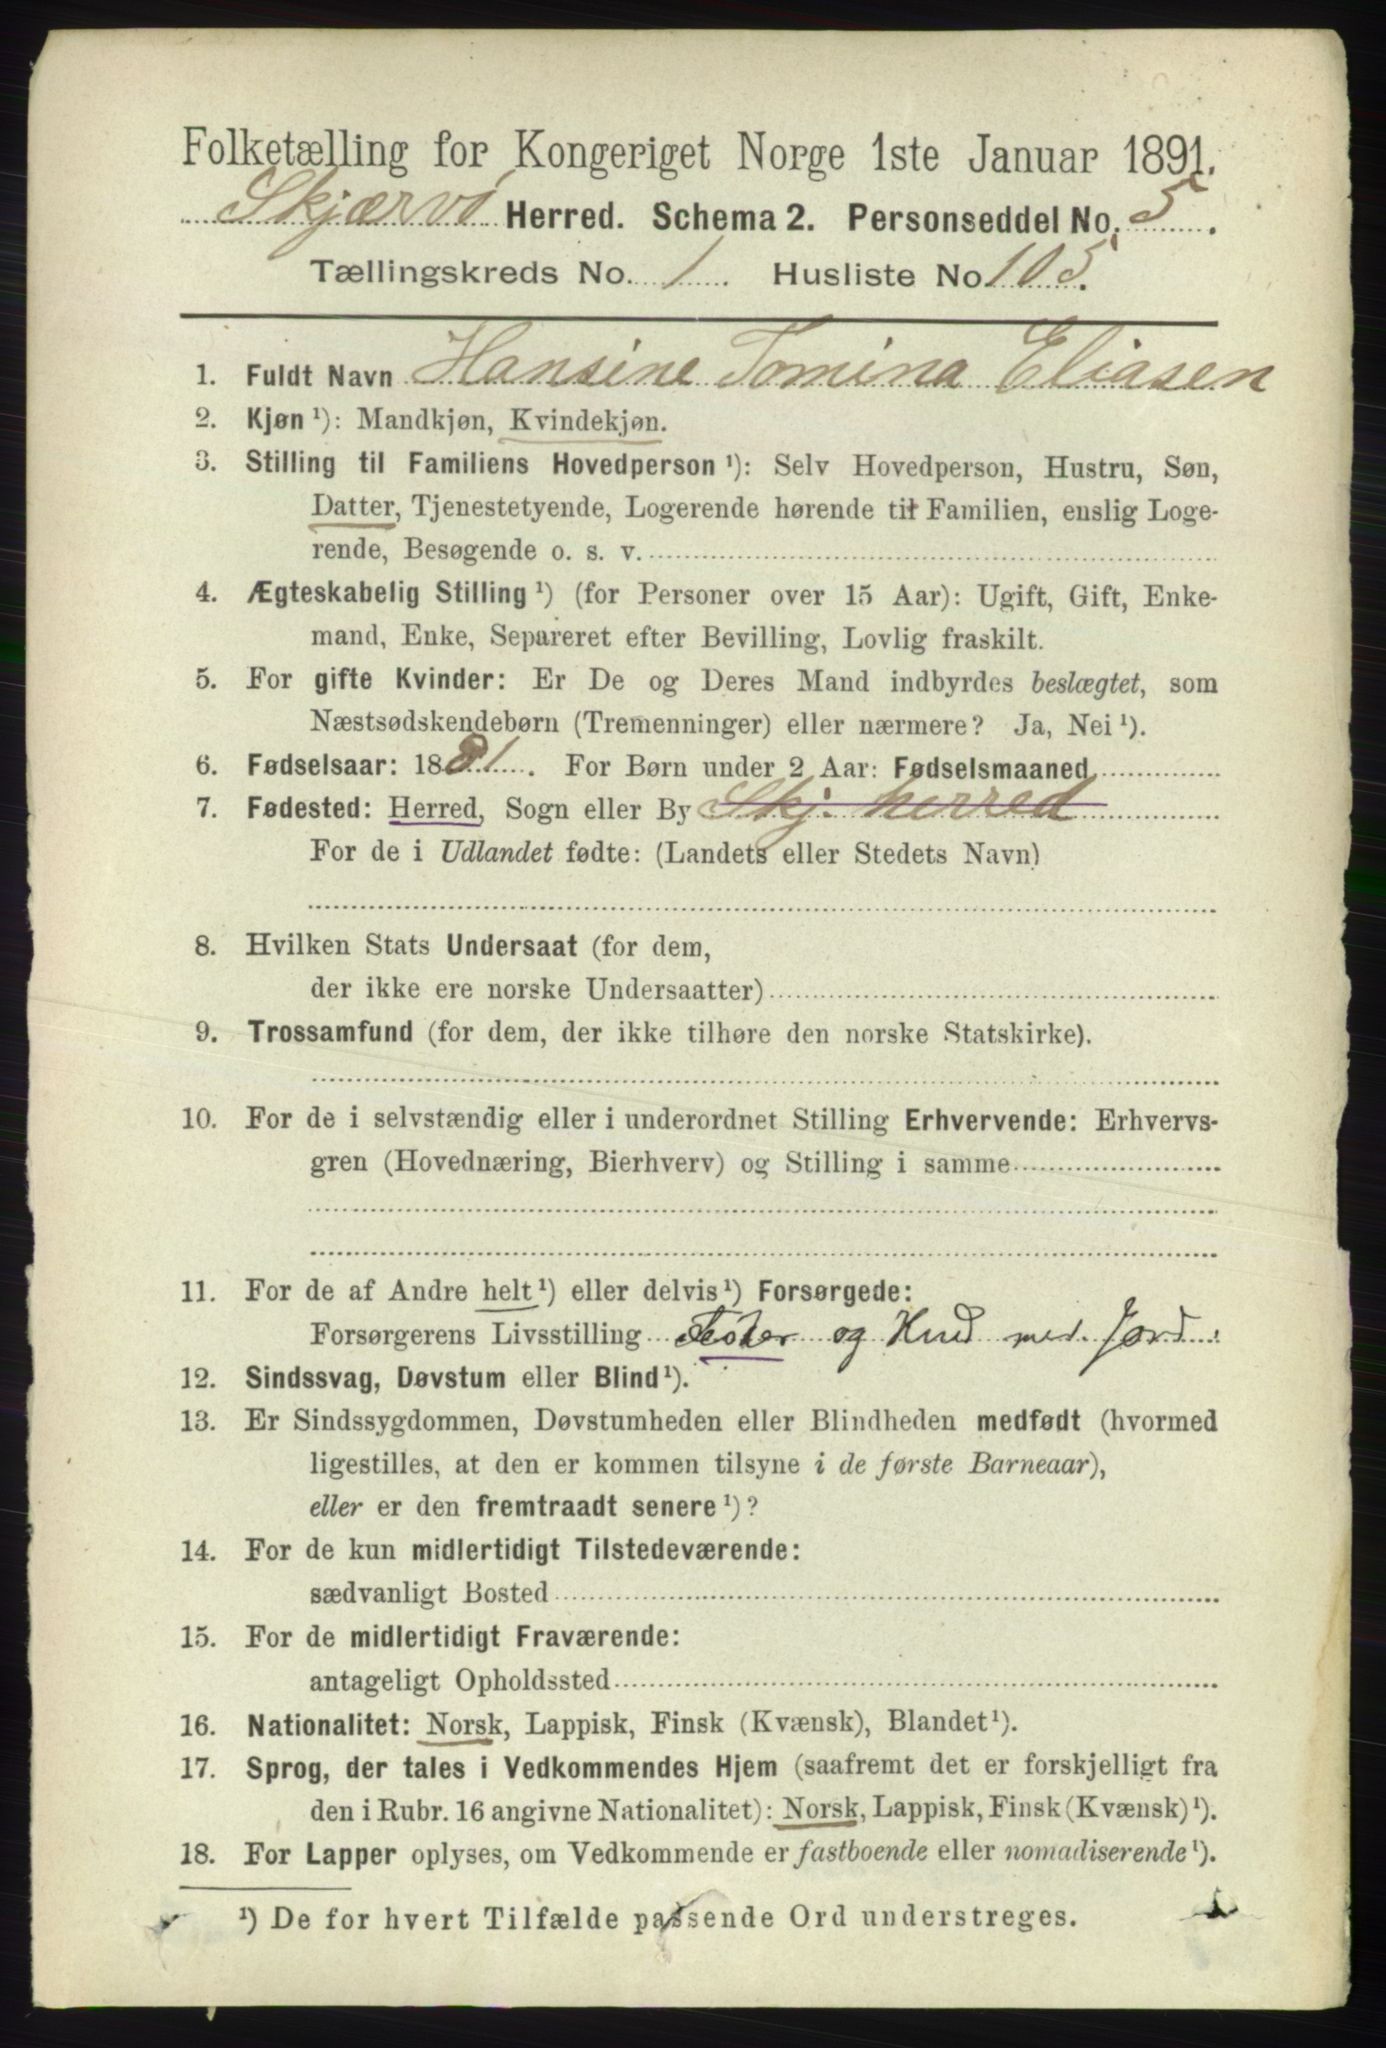 Folketælling for Kongeriget Norge 1ste Januar 1891.
Skjærvø Herred. Schema 2. Personseddel No. 5.
Tællingskreds No. 1. Husliste No 105.
1. Fuldt Navn Hansine Tomina Eliasen
2. Kjøn ¹): Mandkjøn, Kvindekjøn.
3. Stilling til Familiens Hovedperson ¹): Selv Hovedperson, Hustru, Søn,
Datter, Tjenestetyende, Logerende hørende til Familien, enslig Loge-
rende, Besøgende o. s. v.
4. Ægteskabelig Stilling ¹) (for Personer over 15 Aar): Ugift, Gift, Enke-
mand, Enke, Separeret efter Bevilling, Lovlig fraskilt.
5. For gifte Kvinder: Er De og Deres Mand indbyrdes beslægtet, som
Næstsødskendebørn (Tremenninger) eller nærmere? Ja, Nei ¹).
6. Fødselsaar: 1881. For Børn under 2 Aar: Fødselsmaaned
7. Fødested: Herred, Sogn eller By Skj. herred
For de i Udlandet fødte: (Landets eller Stedets Navn)
8. Hvilken Stats Undersaat (for dem,
der ikke ere norske Undersaatter)
9. Trossamfund (for dem, der ikke tilhøre den norske Statskirke).
10. For de i selvstændig eller i underordnet Stilling Erhvervende: Erhvervs-
gren (Hovednæring, Bierhverv) og Stilling i samme
11. For de af Andre helt ¹) eller delvis ¹) Forsørgede:
Forsørgerens Livsstilling og med Jord
12. Sindssvag, Døvstum eller Blind ¹).
13. Er Sindssygdommen, Døvstumheden eller Blindheden medfødt (hvormed
ligestilles, at den er kommen tilsyne i de første Barneaar),
eller er den fremtraadt senere ¹)?
14. For de kun midlertidigt Tilstedeværende:
sædvanligt Bosted
15. For de midlertidigt Fraværende:
antageligt Opholdssted
16. Nationalitet: Norsk, Lappisk, Finsk (Kvænsk), Blandet ¹).
17. Sprog, der tales i Vedkommendes Hjem (saafremt det er forskjelligt fra
den i Rubr. 16 angivne Nationalitet): Norsk, Lappisk, Finsk (Kvænsk) ¹).
18. For Lapper oplyses, om Vedkommende er fastboende eller nomadiserende ¹).
¹) De for hvert Tilfælde passende Ord understreges.